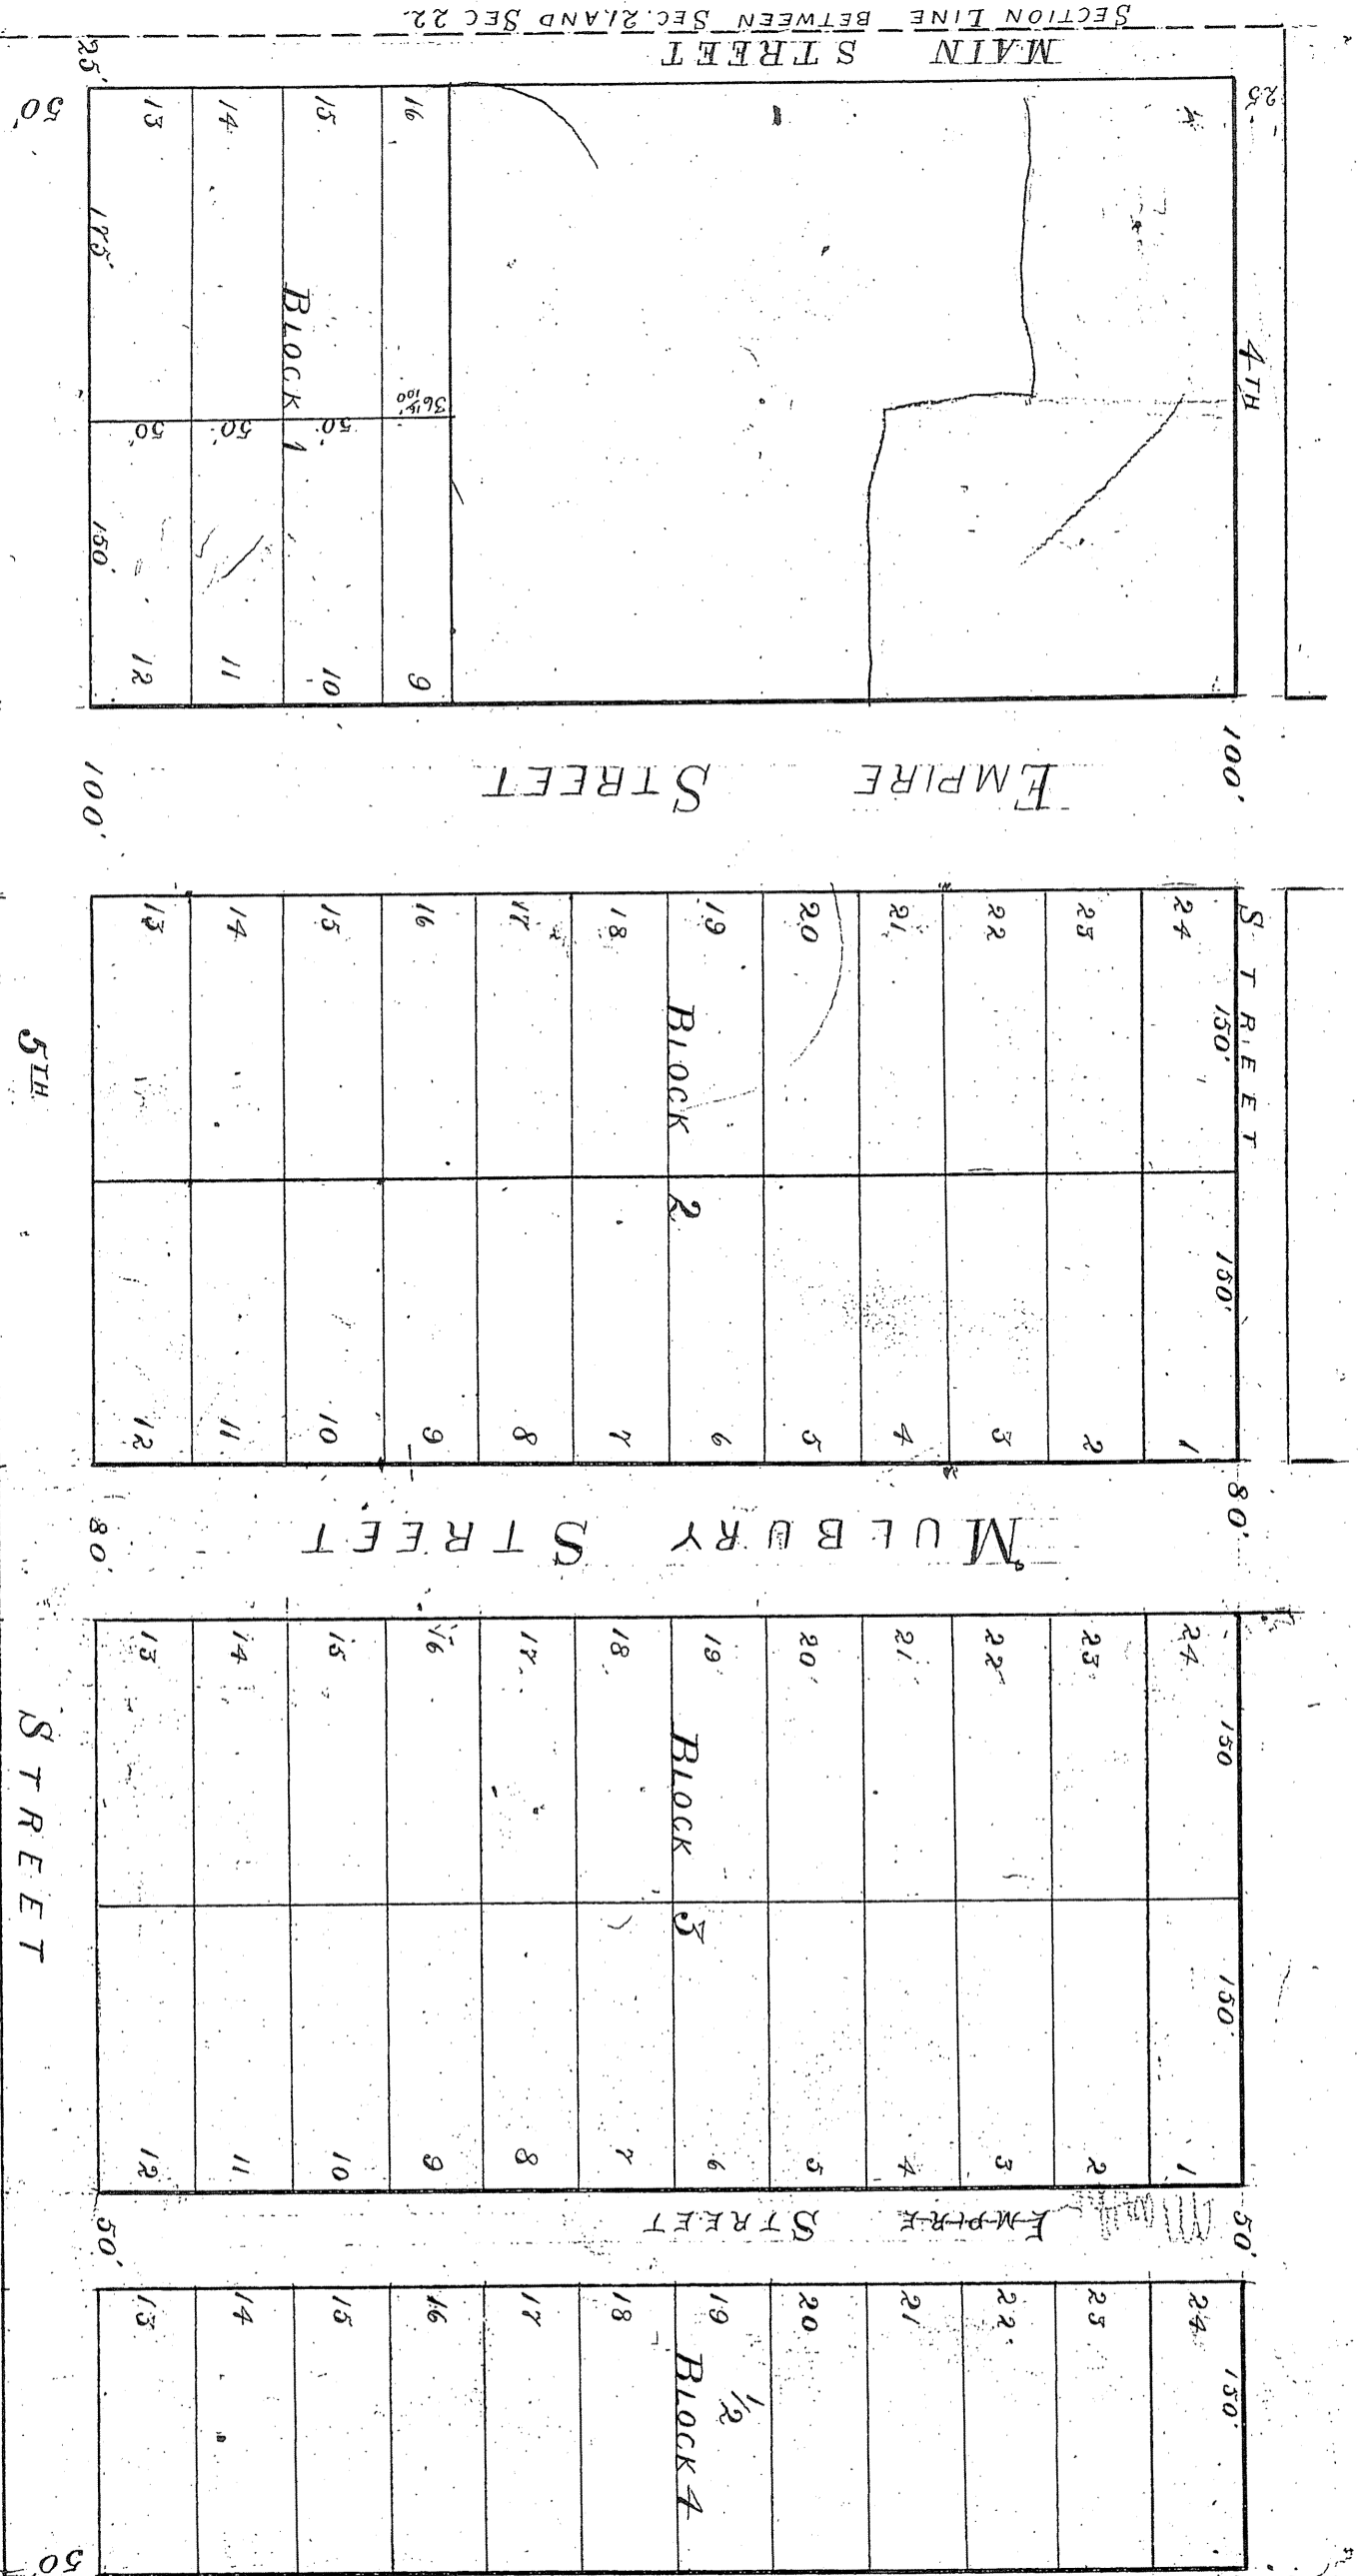 SECTION LINE BETWEEN SEC. 21. AND SEC 22.
MAIN STREET
25'
50'
25
13
14
15
16
175'
BLOCK 1
36 15/100'
50'
50'
50'
150'
12
11
10
9
4TH
STREET
100'
EMPIRE STREET
100'
13
14
15
16
17
18
19
20
21
22
23
24
150'
BLOCK 2
150'
5TH
STREET
12
11
10
9
8
7
6
5
4
3
2
1
80'
MULBURY STREET
80'
13
14
15
16
17
18
19
20
21
22
23
24
150
BLOCK 3
150'
12
11
10
9
8
7
6
5
4
3
2
1
50'
EMPIRE STREET
50'
13
14
15
16
17
18
19
20
21
22
23
24
150'
1/2
BLOCK 4
50'